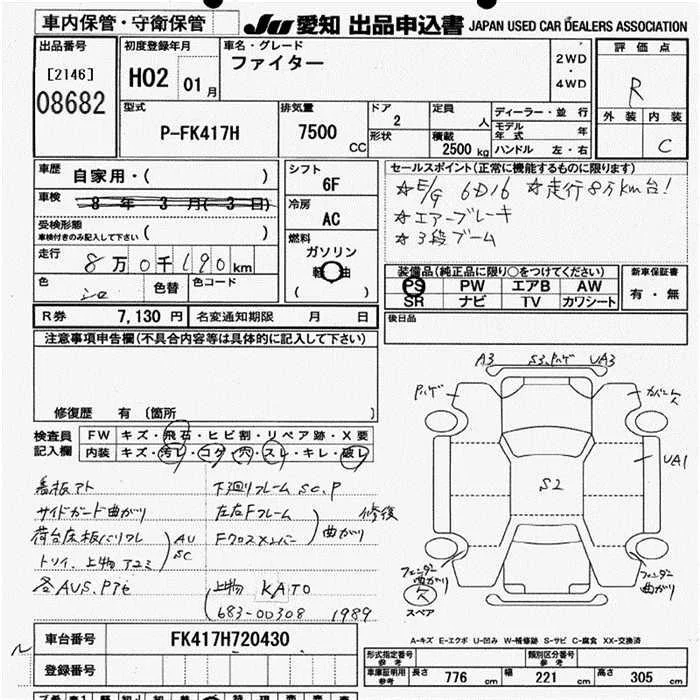 車内保管・守衛保管
JU 愛知 出品申込書 JAPAN USED CAR DEALERS ASSOCIATION
出品番号 初度登録年月 車名・グレード 評価点
[2146] 08682 H02 01月 ファイター 2WD・4WD R
外装 内装 C
型式 P-FK417H 排気量 7500 CC ドア 2 形状 定員 人 積載 2500 kg
ディーラー・並行
モデル年式 年
ハンドル 左・右
車歴 自家用・( ) シフト 6F
車検 8年3月(3日) 冷房 AC
受検形態 車検付きのみ記入して下さい ( )
走行 8万0千190km 燃料 ガソリン 軽油 ( )
色 シロ 色替 色コード
R券 7,130円 名変通知期限 月 日
セールスポイント(正常に機能するものに限ります)
☆E/G 6D16 ☆走行8万km台!
☆エアーブレーキ
☆3段ブーム
装備品(純正品に限り○をつけてください) 新車保証書
PS PW エアB AW 有・無
SR ナビ TV カワシート
後日品
注意事項申告欄(不具合内容等は具体的に記入して下さい)
修復歴 有 〔箇所 〕
検査員記入欄 FW キズ・飛石・ヒビ割・リペア跡・X要
内装 キズ・汚レ・コゲ・穴・スレ・キレ・破レ
看板アト 下廻リフレーム SC.P
サイドガード曲がり 左右Fフレーム
荷台床板バリフレ AU SC Fクロスメンバー 曲がり 修復
トリイ、上物アユミ
各AUS.Pアモ 上物 KATO
(683-00308 1989
A3 S3.Pハゲ UA3
Pハゲ カバー欠
UA1
S2
フェンダー曲がり フェンダー曲がり
欠
スペア
A-キズ E-エクボ U-凹み W-補修跡 S-サビ C-腐食 XX-交換済
車台番号 FK417H720430
登録番号
形式指定番号 参考 類別区分番号 参考
車庫証明用 参考 長さ 776 cm 幅 221 cm 高さ 305 cm